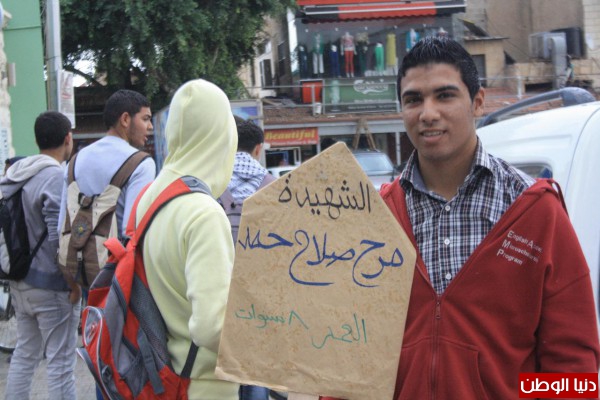 Beautiful
الشهيدة
مرح صلاح حمد
العمر ٨ سنوات
English Access
Microscholarship
Program
دنيا الوطن